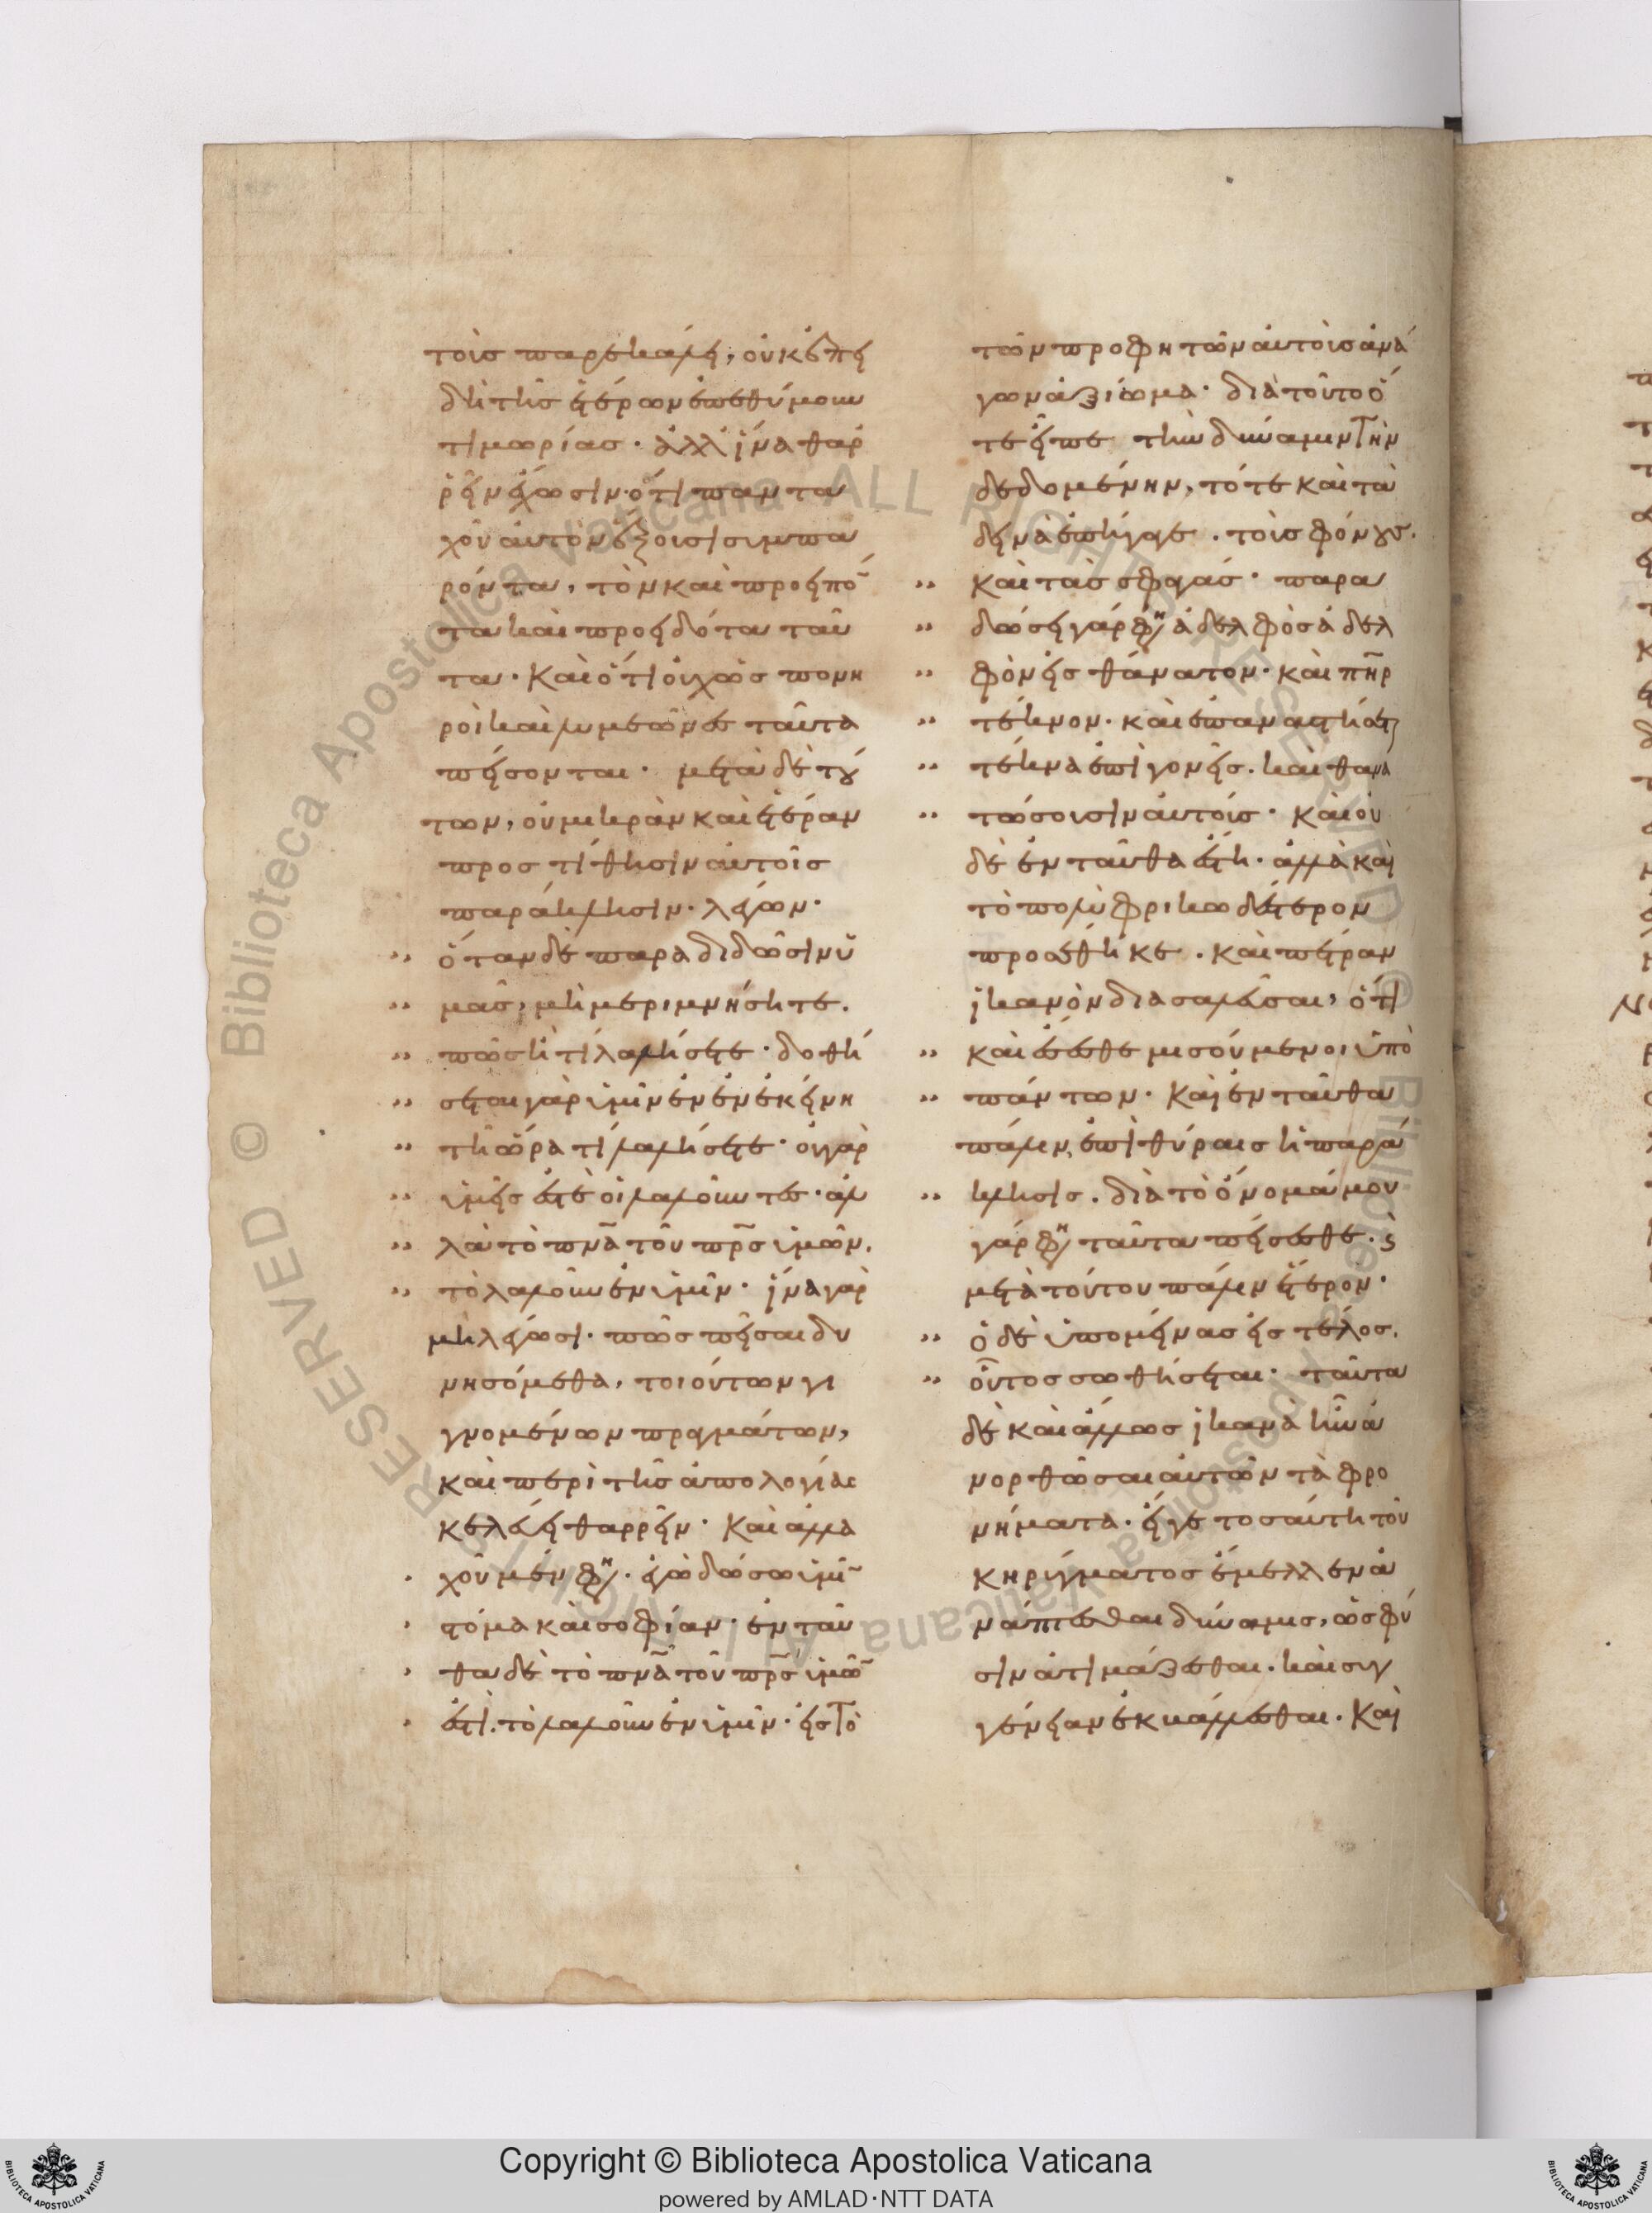 τοὶσ παρεκάλει, οὐκ ἐπει
δὴ τῆσ ἑτέρων ἐπεθύμουν
τιμωρίασ · ἀλλ ἵνα θαρ
ρεῖν ἔχωσιν · ὅτι πανταν
χοῦ αὐτὸν ἕξουσι συμπα
ρόντα, τὸν καὶ προειπό
τα καὶ προειδότα ταῦ
τα · Καὶ ὅτι οὐχ ὡσ πονη
ροὶ καὶ λυμεῶνεσ ταῦτα
πείσονται · μετὰ δὲ τού
των, οὐ μικρὰν καὶ ἑτέραν
προστίθησιν αὐτοῖσ
παράκλησιν · λέγων ·
ὅταν δὲ παραδιδῶσιν ὑ
μᾶσ, μὴ μεριμνήσητε .
πῶσ ἢ τί λαλήσετε · δοθή
σεται γὰρ ὑμῖν ἐν ἐκείνη
τῆ ὥρα τί λαλήσετε · οὐ γὰρ
ὑμεῖσ ἐστὲ οἱ λαλοῦντεσ · ἀλ
λὰ τὸ πνα τοῦ πρσ ὑμῶν .
τὸ λαλοῦν ἐν ὑμῖν · ἵνα γὰρ
μὴ λέγωσι · πῶσ πεῖσαι δυ
νησόμεθα, τοιούτων γι
γνομένων πραγμάτων,
καὶ περὶ τῆσ ἀπολογίασ
κελεύει θαρρεῖν · Καὶ ἀλλα
χοῦ μέν φη · ἐγὼ δώσω ὑμῖ
στόμα καὶ σοφίαν · ἐνταῦ
θα δὲ τὸ πνα τοῦ πρσ ὑμῶ
ἐστὶ . τὸ λαλοῦν ἐν ὑμῖν · εἰσ τὸ
τῶν προφητῶν αὐτοὺσ ἀνά
γων ἀξίωμα · διὰ τοῦτο ὅ
τε εἶπε τὴν δύναμιν τὴν
δεδομένην, τότε καὶ τὰ
δεινὰ ἐπήγαγε . τοὺσ φόνουσ .
καὶ τὰσ σφαγάσ · παρα
δώσει γάρ φη ἀδελφὸσ ἀδελ
φὸν εἰσ θάνατον · καὶ πηρ
τέκνον · καὶ ἐπαναστήσεται
τέκνα ἐπὶ γονεῖσ . καὶ θανα
τώσουσιν αὐτούσ · Καὶ οὐ
δὲ ἐνταῦθα ἔστη · ἀλλὰ καὶ
τὸ πολὺ φρικωδέστερον
προσέθηκε . καὶ πέτραν
ἱκανὸν διασαλεῦσαι, ὅτι
καὶ ἔσεσθε μισούμενοι ὑπὸ
πάντων · Καὶ ἐνταῦθα
πάλιν, ἐπὶ θύραισ ἡ παρά
κλησισ . διὰ τὸ ὄνομά μου
γάρ φη ταῦτα πείσεσθε . καὶ
μετὰ τούτου πάλιν ἕτερον ·
ὁ δὲ ὑπομείνασ εἰσ τέλοσ .
οὗτοσ σωθήσεται · ταῦτα
δὲ καὶ ἄλλωσ ἱκανὰ ἦν ἀ
νορθῶσαι αὐτῶν τὰ φρο
νήματα · εἴγε τοσαύτη τοῦ
κηρύγματοσ ἔμελλεν ἀ
νάπτεσθαι δύναμισ, ὡσ φύ
σιν ἀτιμάζεσθαι . καὶ συγ
γένειαν ἐκκαλλεσθαι . Καὶ
Copyright © Biblioteca Apostolica Vaticana
powered by AMLAD·NTT DATA